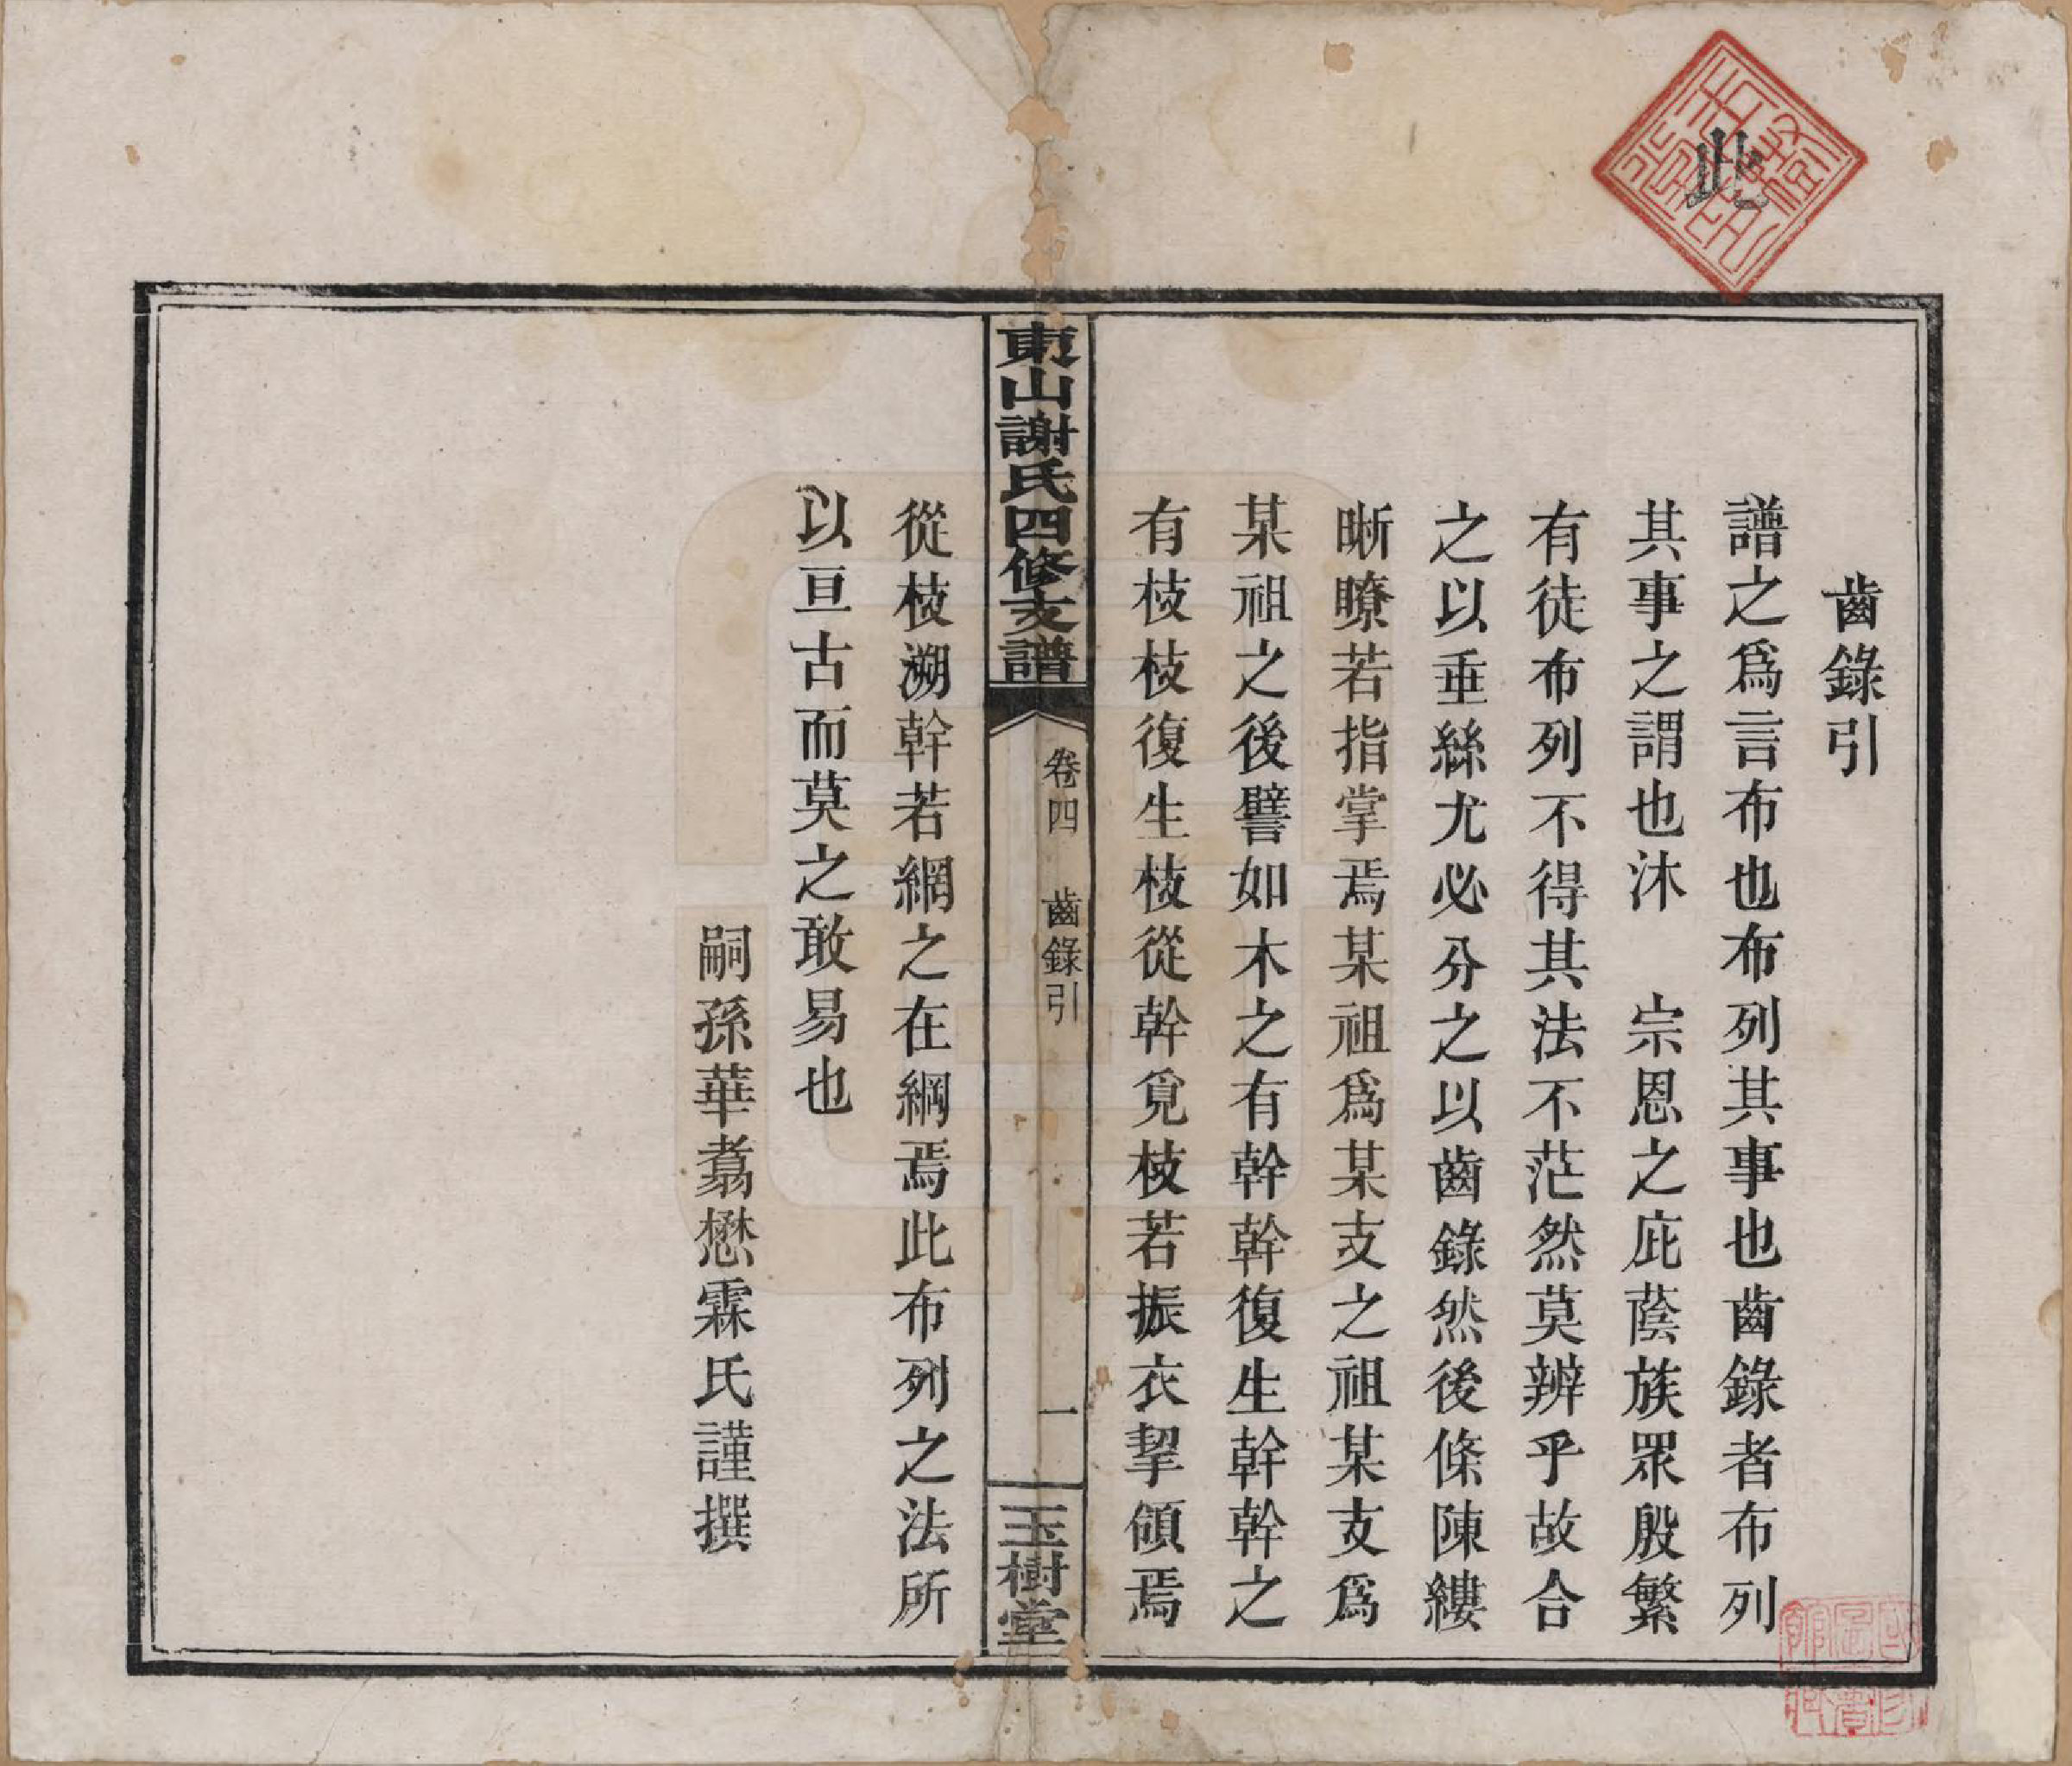 此
齒錄引
譜之爲言布也布列其事也齒錄者布列
其事之謂也沐　宗恩之庇蔭族眾殷繁
有徒布列不得其法不茫然莫辨乎故合
之以垂絲尤必分之以齒錄然後條陳縷
晰瞭若指掌焉某祖爲某支之祖某支爲
某祖之後譬如木之有幹幹復生幹幹之
有枝枝復生枝從幹覓枝若振衣挈領焉
東山謝氏四修支譜
卷四　齒錄引
一
玉樹堂
從枝溯幹若網之在綱焉此布列之法所
以亘古而莫之敢易也
嗣孫華翥懋霖氏謹撰